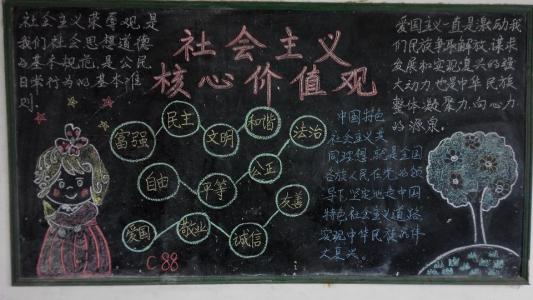 社会主义荣辱观,是
我们社会思想道德
的基本规范,是公民
日常行为的基本准
则.
社会主义
核心价值观
富强
民主
文明
和谐
法治
自由
平等
公正
爱国
敬业
诚信
友善
C88
中国特色
社会主义共
同理想,就是全国
各族人民在党的领
导下,坚定地走中国
特色社会主义道路
实现中华民族
大复兴。
爱国主义一直是激励我
们民族争取解放,谋求
发展和实现复兴的强
大动力,也是中华民族
整体凝聚力,向心力
的源泉.